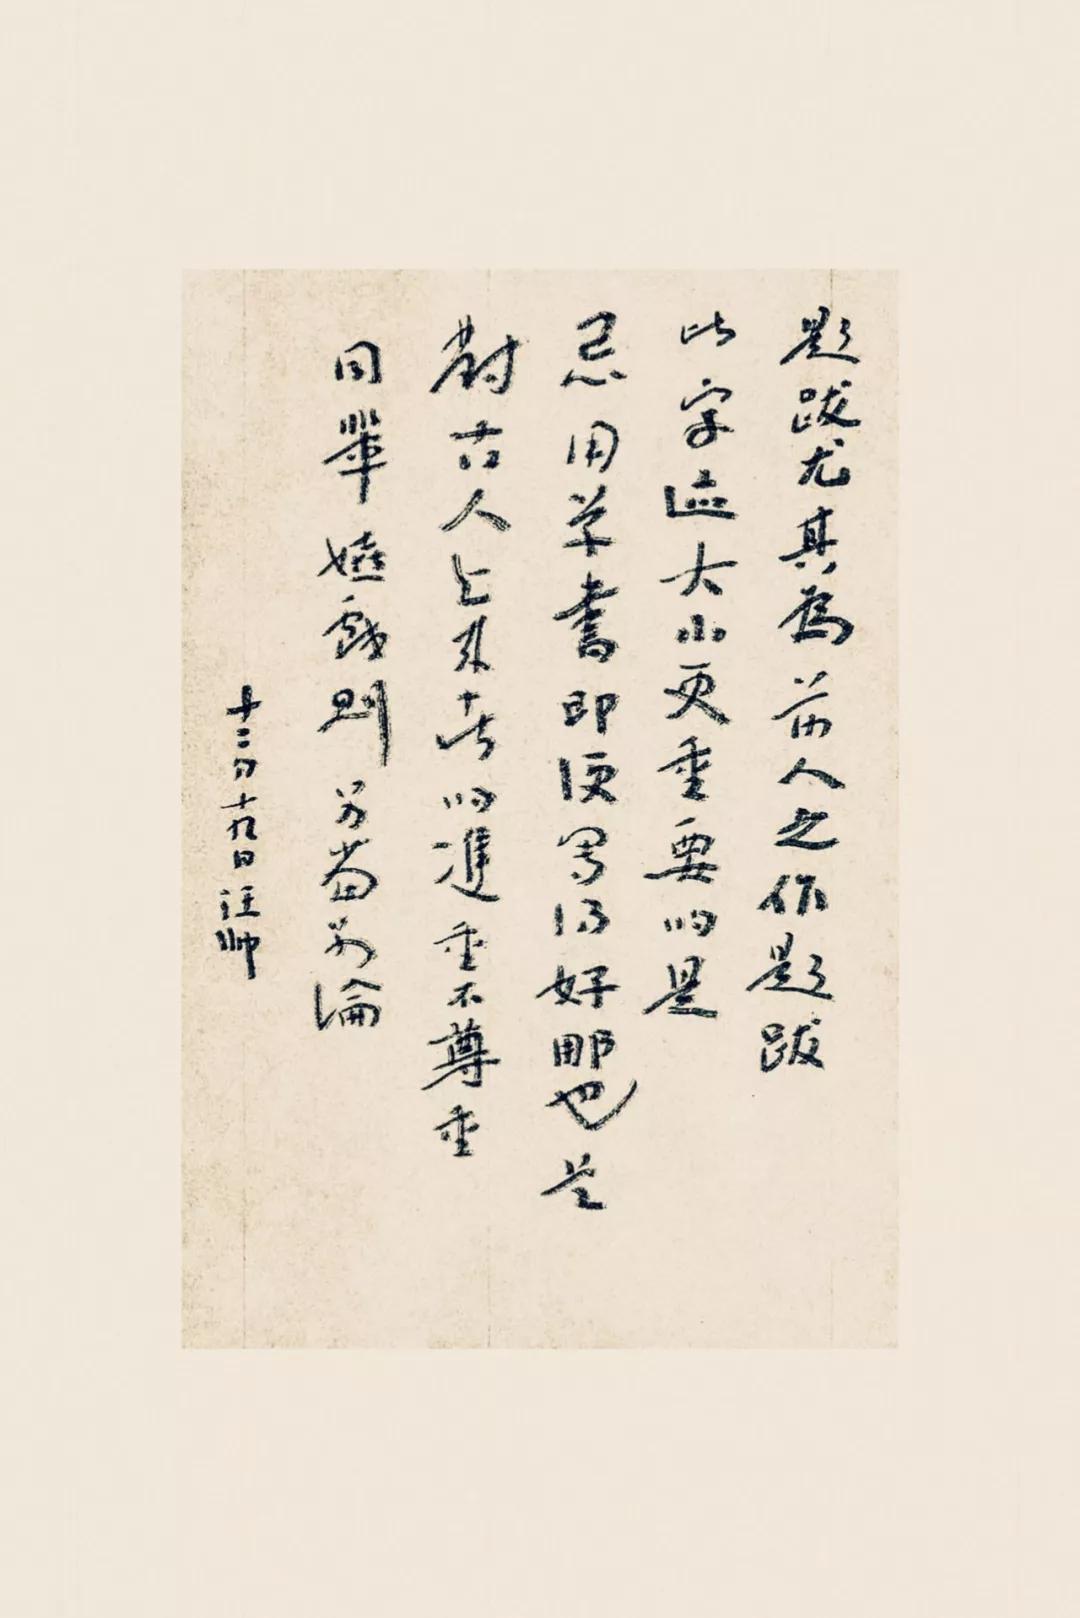 題跋尤其為前人之作題跋
比字迹大小更重要的是
忌用草書即便寫得好那也是
對古人与来者的雙重不尊重
同輩嬉戲則另當別論
十二月十九日汪帥